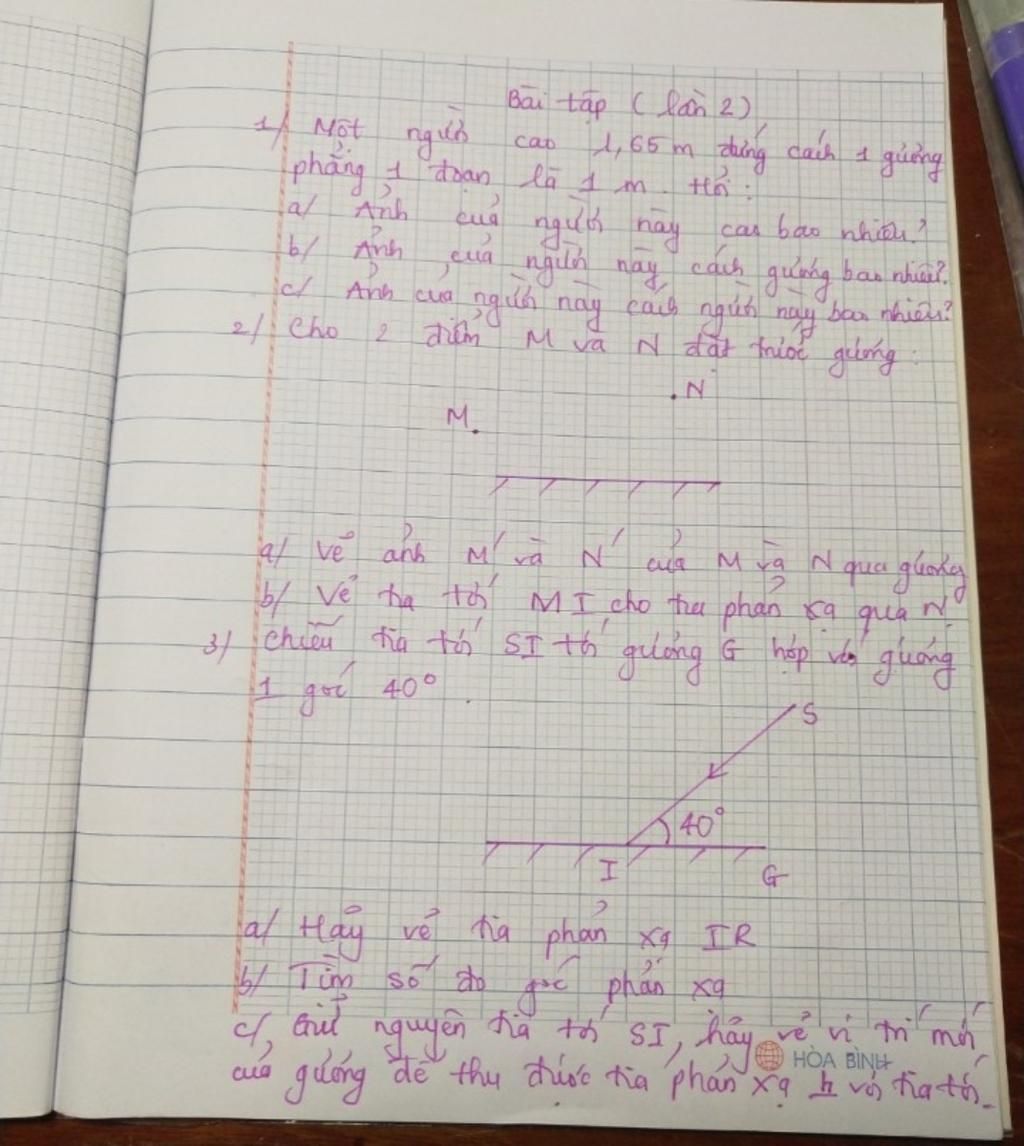 Bài tập (lần 2)
1/ Một người cao 1,65m đứng cách 1 gương
phẳng 1 đoạn là 1 m. Hỏi:
a/ Ảnh của người này cao bao nhiêu?
b/ Ảnh của người này cách gương bao nhiêu?
c/ Ảnh của người này cách người này bao nhiêu?
2/ Cho 2 điểm M và N đặt trước gương:
N
M
a/ Vẽ ảnh M' và N' của M và N qua gương
b/ Vẽ tia tới MI cho tia phản xạ qua N.
3/ Chiếu tia tới SI tới gương G hợp với gương
1 góc 40°.
S
40°
I
G
a/ Hãy vẽ tia phản xạ IR
b/ Tìm số đo góc phản xạ
c/ Giữ nguyên tia tới SI, hãy vẽ vị trí mới
HÒA BÌNH
của gương để thu được tia phản xạ ⊥ với tia tới.